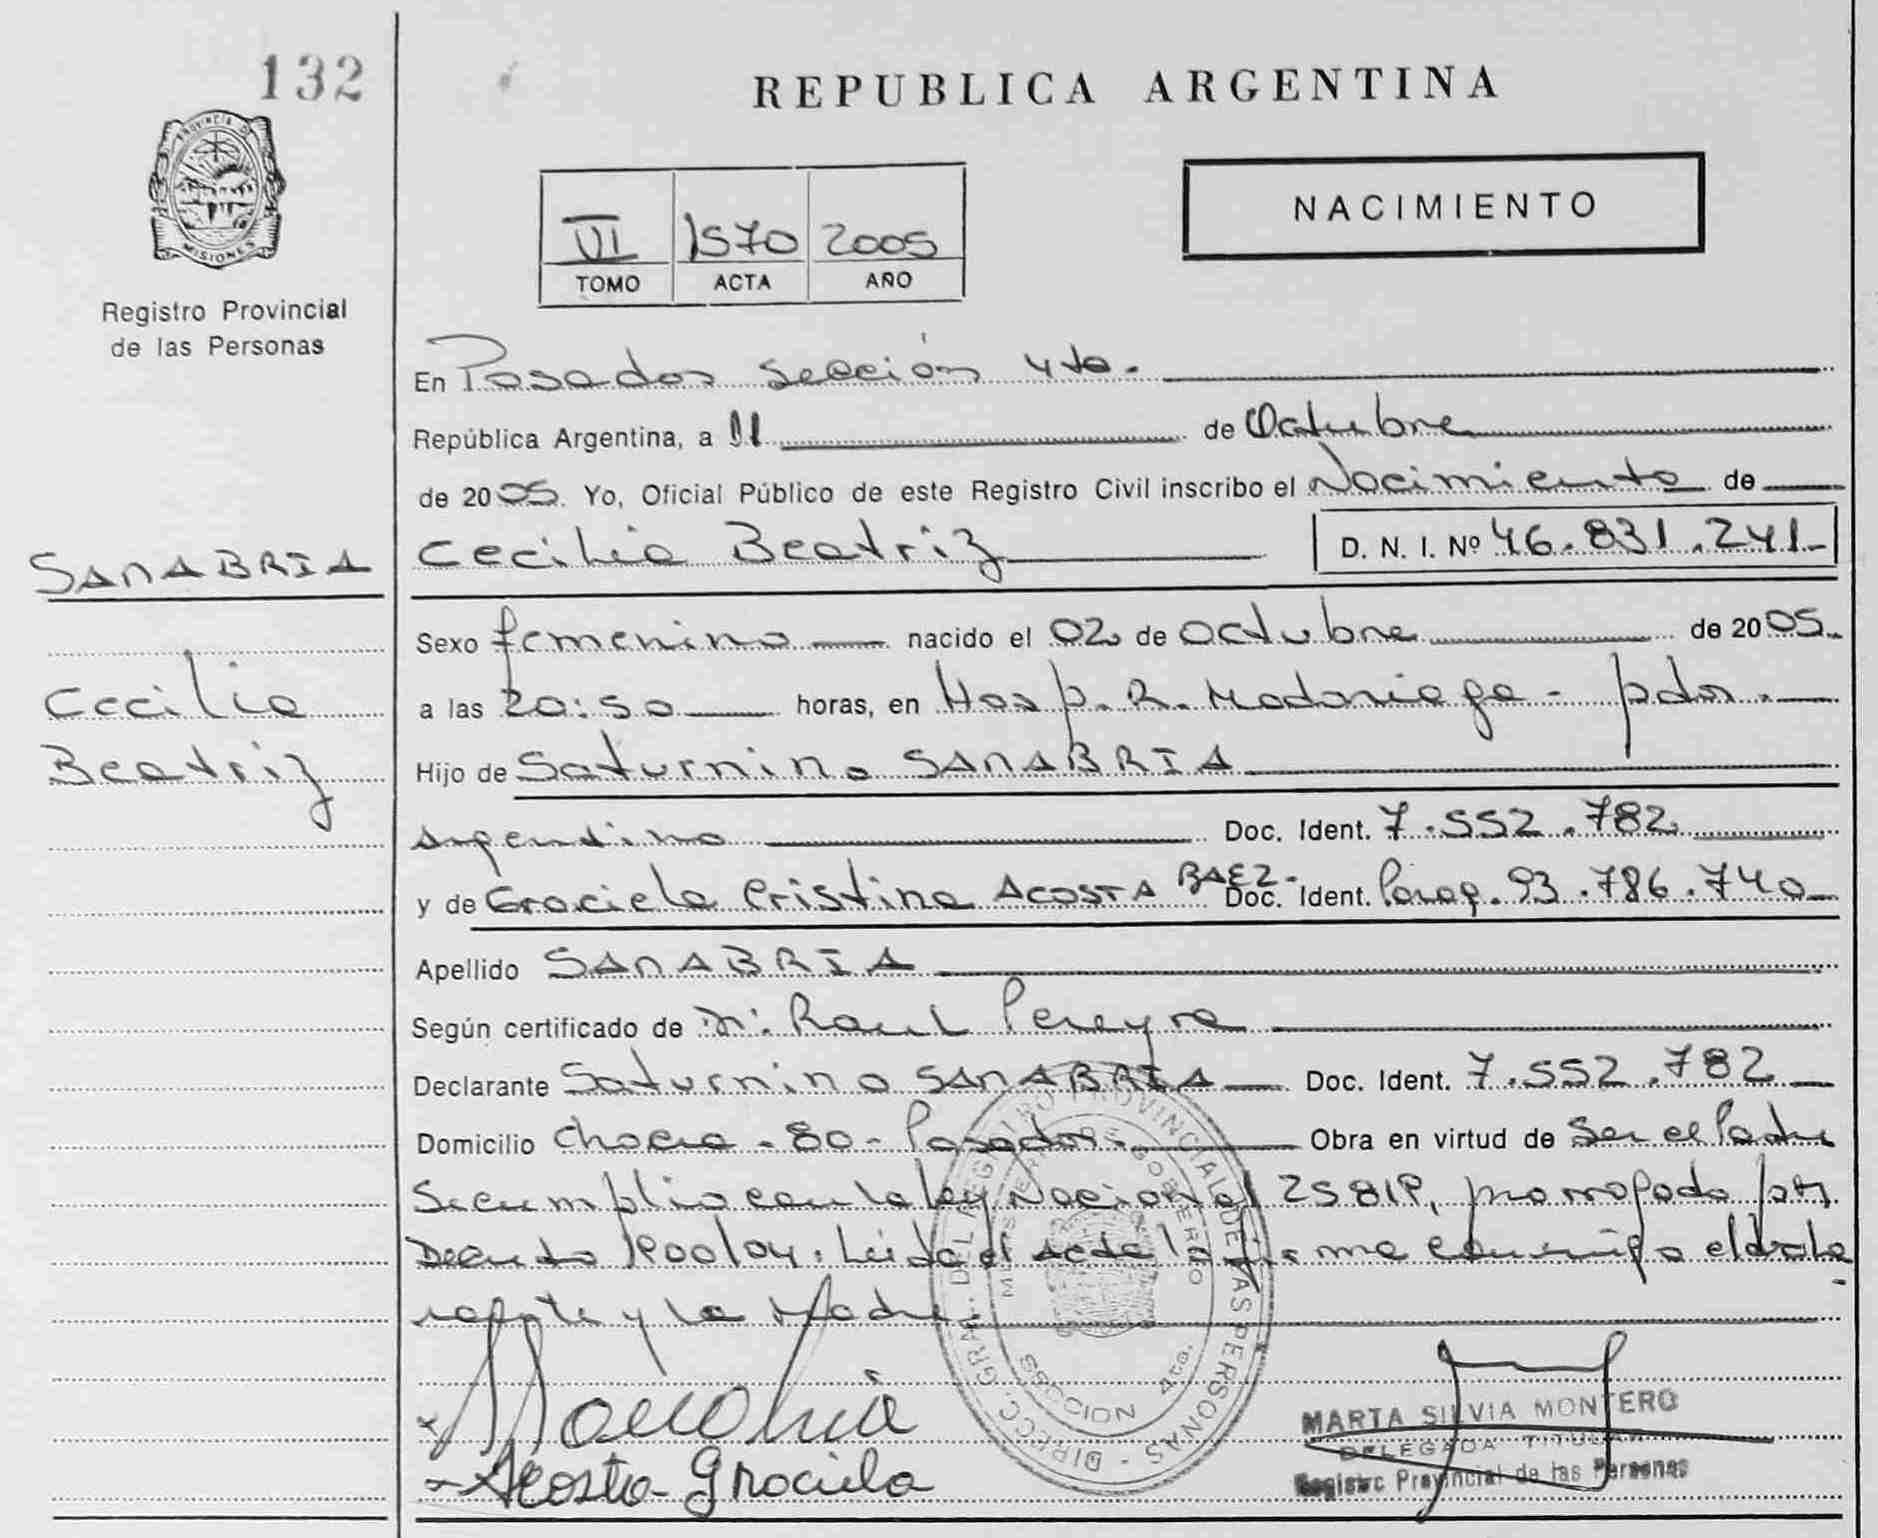 132
PROVINCIA DE
MISIONES
Registro Provincial
de las Personas
REPUBLICA ARGENTINA
NACIMIENTO
VI 1570 2005
TOMO ACTA AÑO
En Posadas sección 4ta.
República Argentina, a 11 de Octubre
de 2005. Yo, Oficial Público de este Registro Civil inscribo el Nacimiento de
SANABRIA
Cecilia Beatriz
Cecilia Beatriz D. N. I. Nº 46.831.241-
Sexo femenino nacido el 02 de octubre de 2005.
a las 20:50 horas, en Hosp. R. Madariaga - pdas.
Hijo de Saturnino SANABRIA
argentino Doc. Ident. 7.552.782
y de Graciela Cristina ACOSTA BAEZ- Doc. Ident. Parag. 93.786.740
Apellido SANABRIA
Según certificado de Dr. Raul Pereyra
Declarante Saturnino SANABRIA Doc. Ident. 7.552.782
Domicilio Chacra - 80 - Posadas. Obra en virtud de Ser el Padre
Se cumplio con la ley Nacional 25819, prorrogada por
Decreto 1900/04. Leida el Acta la firma conmigo el decla
rante y la Madre
DIRECC. GRAL. DEL REGISTRO PROVINCIAL DE LAS PERSONAS -
MINISTERIO DE GOBIERNO
SECCION 4ta.
Acosta Graciela
MARTA SILVIA MONTERO
DELEGADA TITULAR
Registro Provincial de las Personas